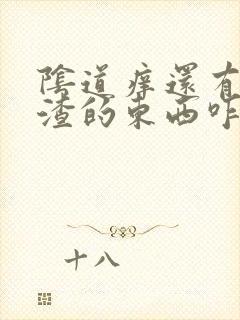 陰道痒還有
渣的東西咋
十八